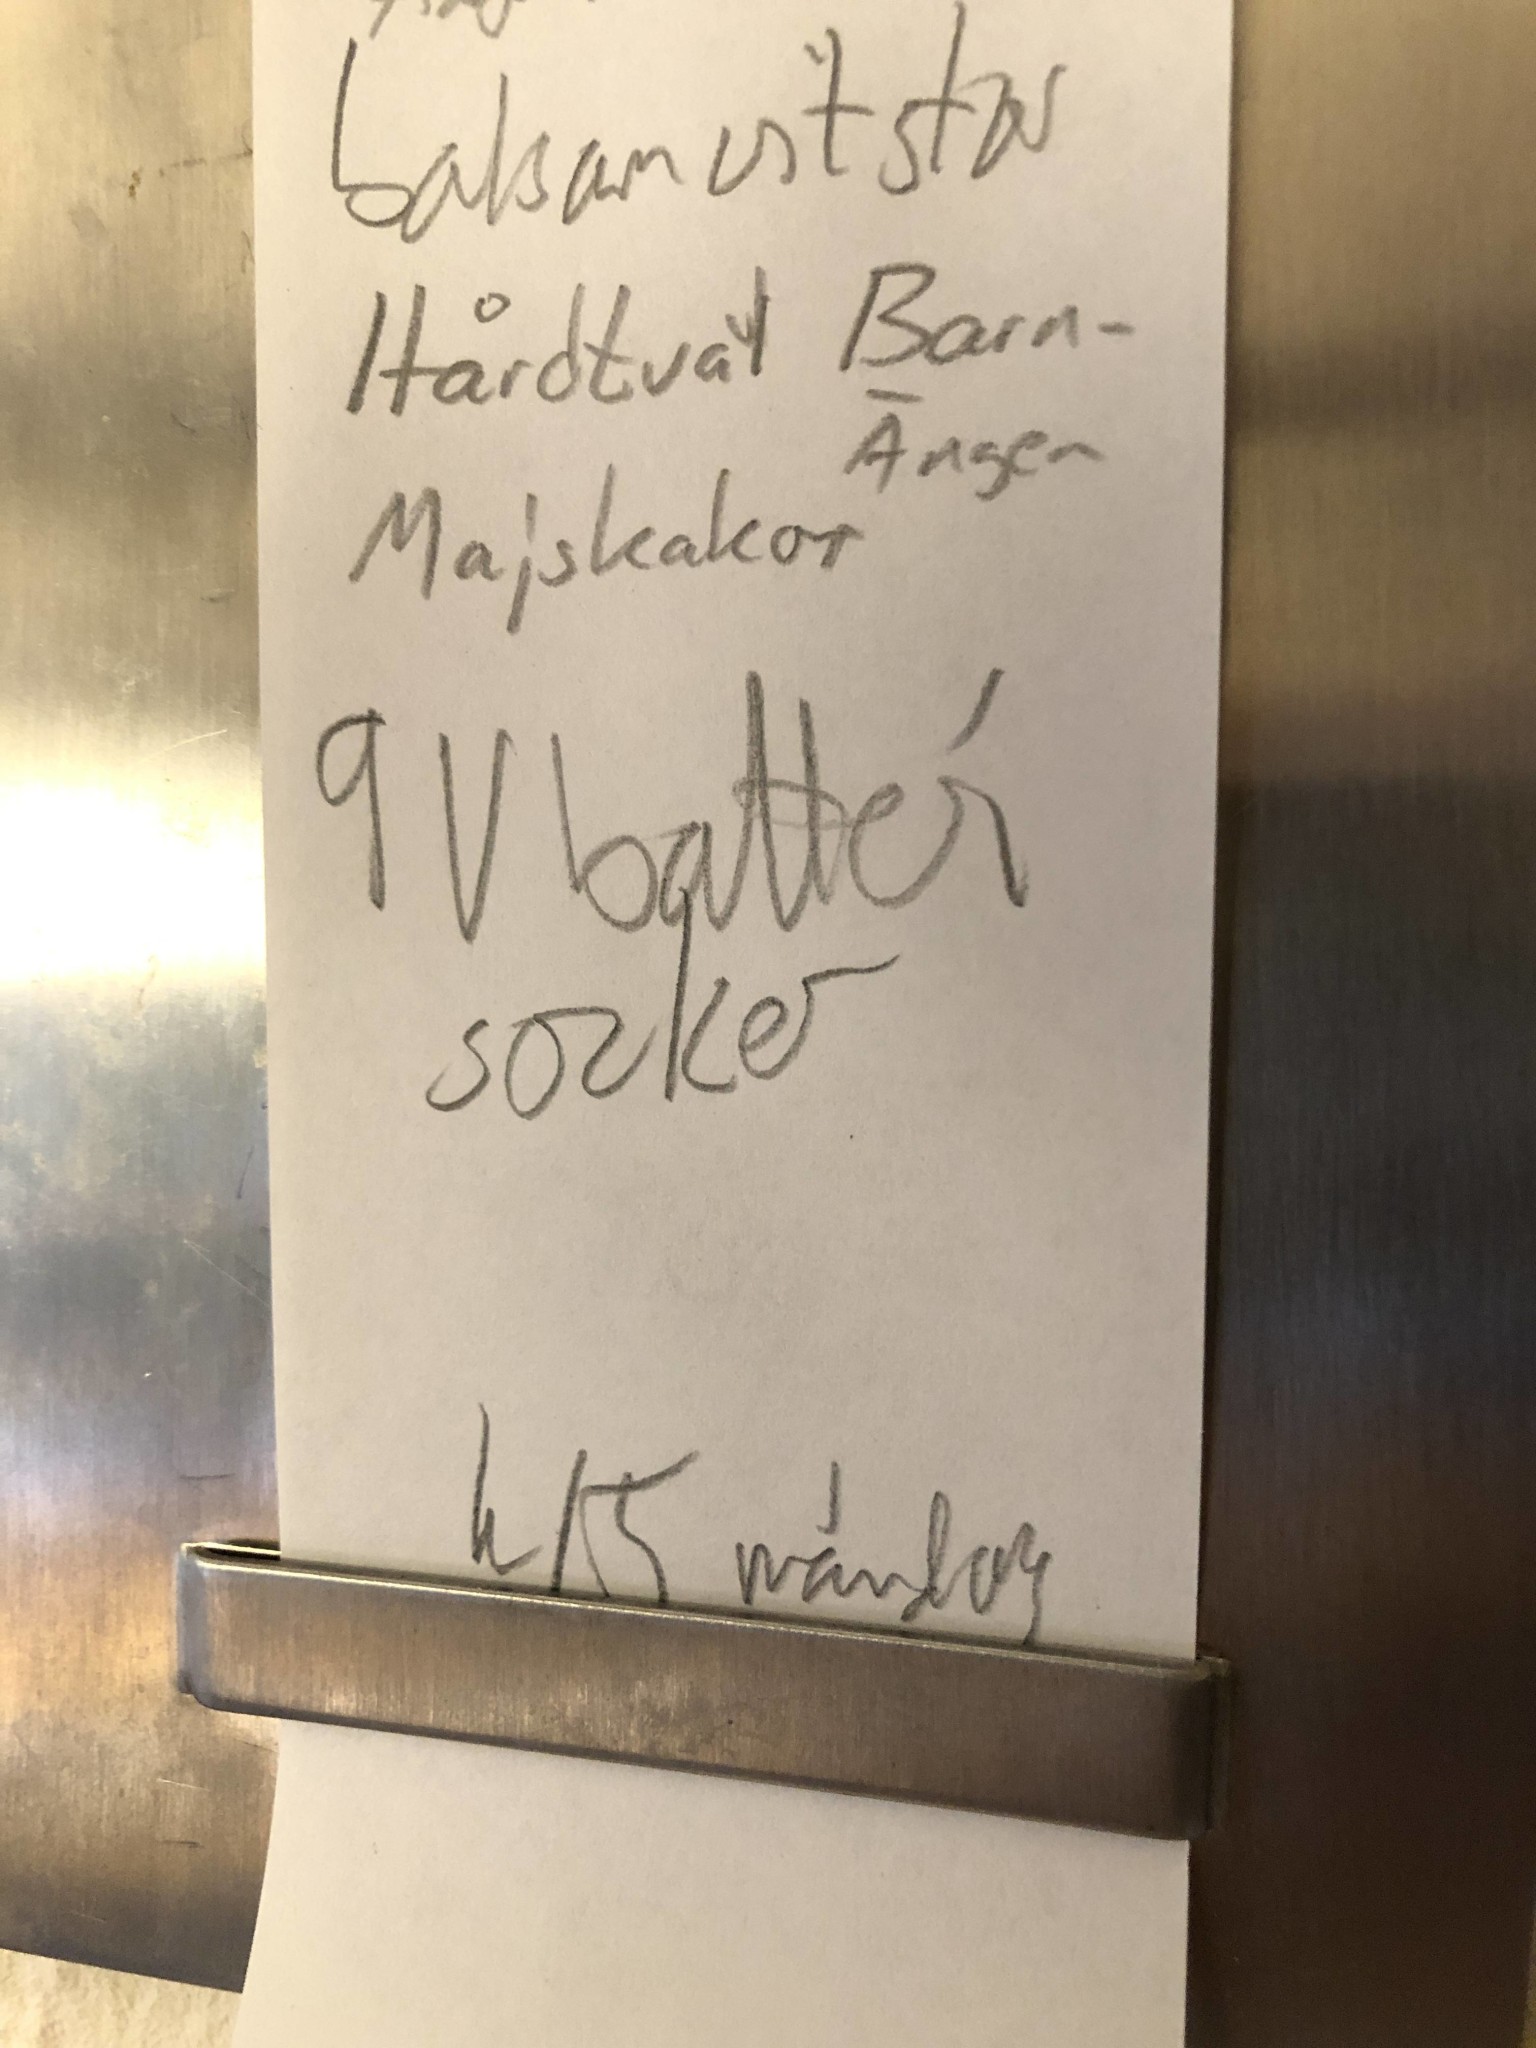 balsamvit stor
Hårdtvål Barn-
Ängen
Majskakor
9 V batteri
socker
måndag